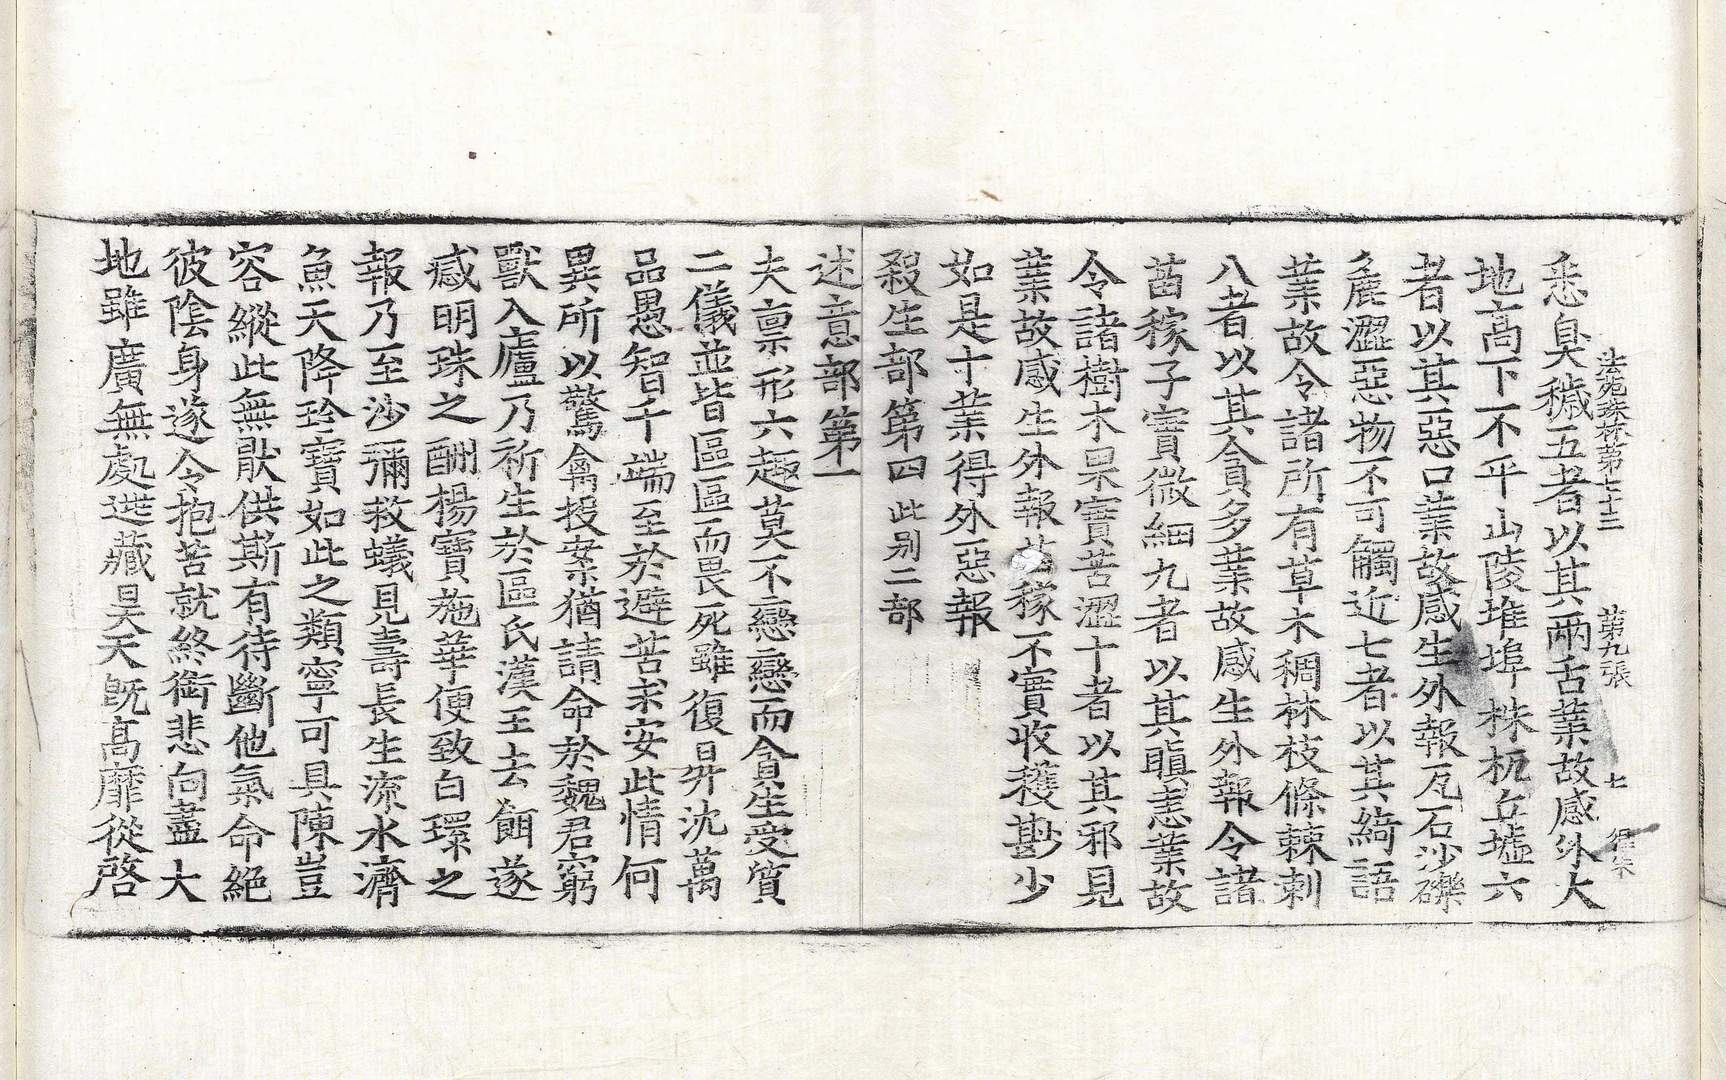 法苑珠林第七十三　第九張　七
悉臭穢五者以其兩舌業故感外大
地高下不平山陵堆埠株杌丘墟六
者以其惡口業故感生外報瓦石沙礫
麁澀惡物不可觸近七者以其綺語
業故令諸所有草木稠林枝條棘刺
八者以其貪多業故感生外報令諸
苗稼子實微細九者以其瞋恚業故
令諸樹木果實苦澀十者以其邪見
業故感生外報苗稼不實收穫尠少
如是十業得外惡報
殺生部第四此别二部
述意部第一
夫禀形六趣莫不戀戀而貪生受質
二儀並皆區區而畏死雖復昇沈萬
品愚智千端至於避苦求安此情何
異所以驚禽投案猶請命於魏君窮
獸入廬乃祈生於區氏漢王去餌遂
感明珠之酬楊寶施華便致白環之
報乃至沙彌救蟻見壽長生流水濟
魚天降珍寶如此之類寧可具陳豈
容縱此無猒供斯有待斷他氣命絕
彼陰身遂令抱苦就終銜悲向盡大
地雖廣無處逃藏昊天既高靡從啓